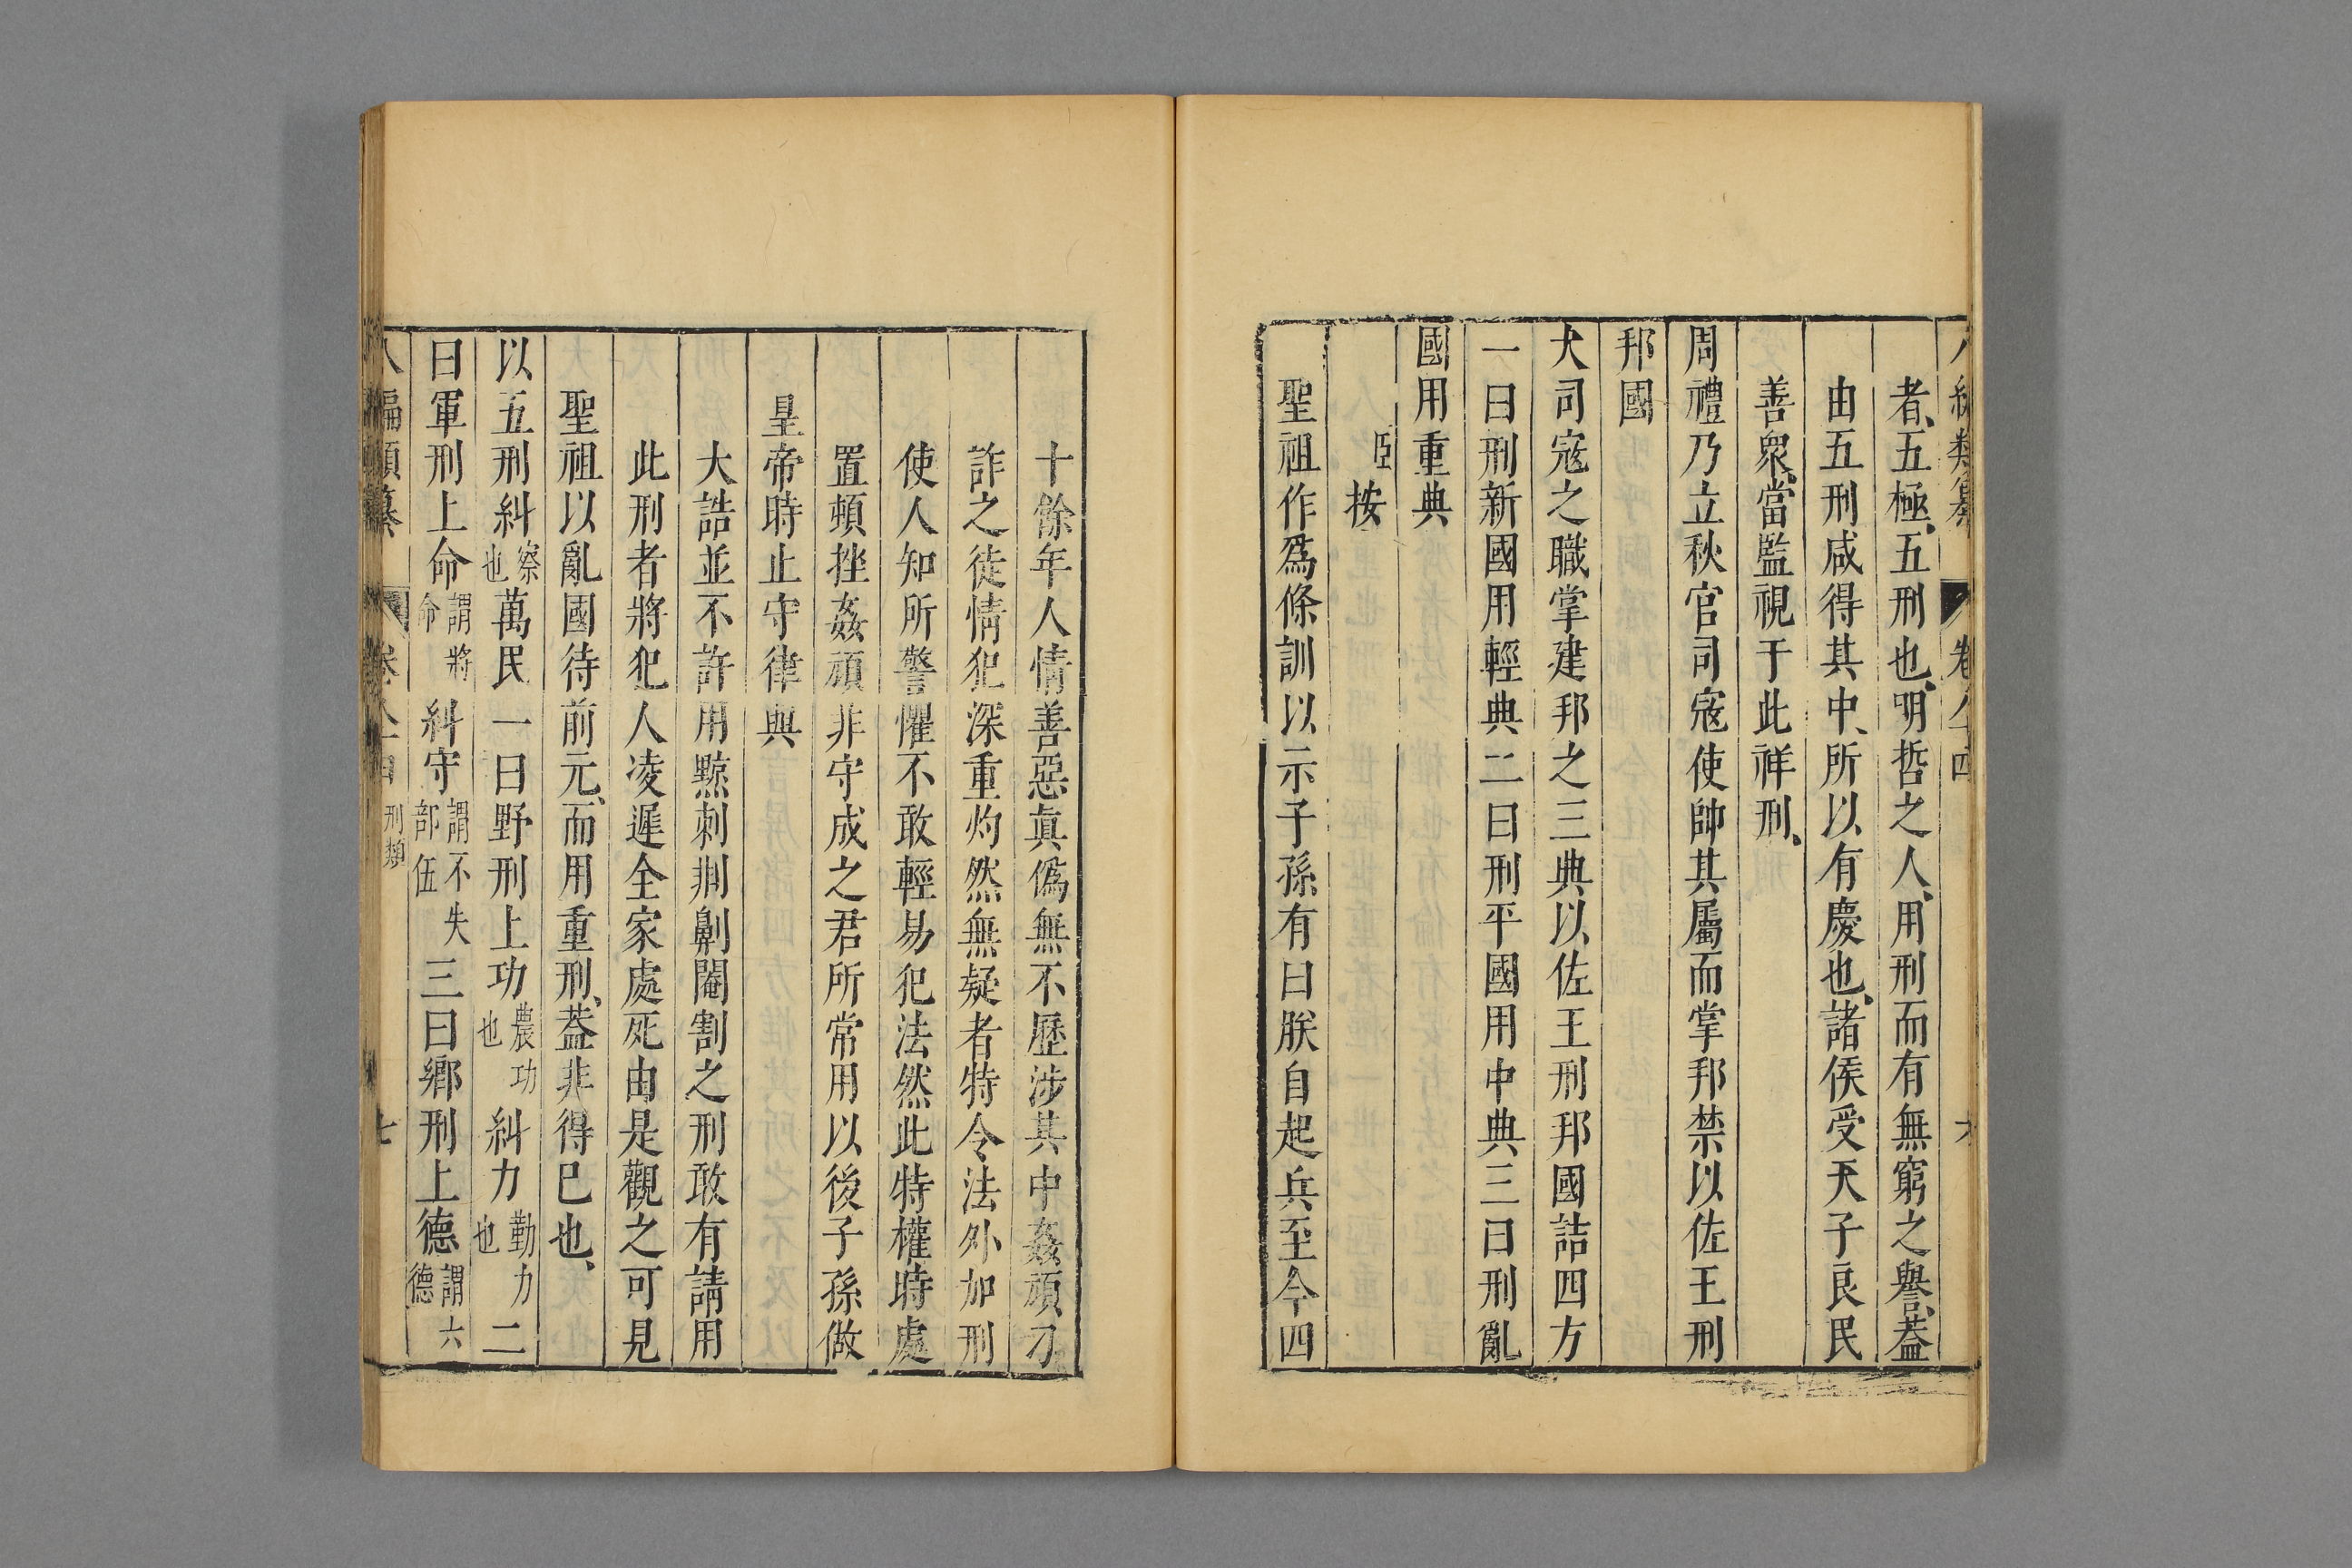 八編類纂 卷八十四 六
者、五極、五刑也、明哲之人、用刑而有無窮之譽、蓋
由五刑咸得其中、所以有慶也、諸侯受天子良民
善衆、當監視于此祥刑、
周禮乃立秋官司寇使帥其屬而掌邦禁以佐王刑
邦國
大司寇之職掌建邦之三典以佐王刑邦國詰四方
一曰刑新國用輕典二曰刑平國用中典三曰刑亂
國用重典
臣按
聖祖作爲條訓以示子孫有曰朕自起兵至今四
十餘年人情善惡眞僞無不歷涉其中姦頑刁
詐之徒情犯深重灼然無疑者特令法外加刑
使人知所警懼不敢輕易犯法然此特權時處
置頓挫姦頑非守成之君所常用以後子孫做
皇帝時止守律與
大誥並不許用黥刺剕劓閹割之刑敢有請用
此刑者將犯人凌遲全家處死由是觀之可見
聖祖以亂國待前元、而用重刑、蓋非得已也、
以五刑糾察也萬民一曰野刑上功農功也糾力勤力也二
曰軍刑上命謂將命糾守謂不失部伍三曰鄉刑上德謂六德
八編類纂 卷八十四 刑類 七